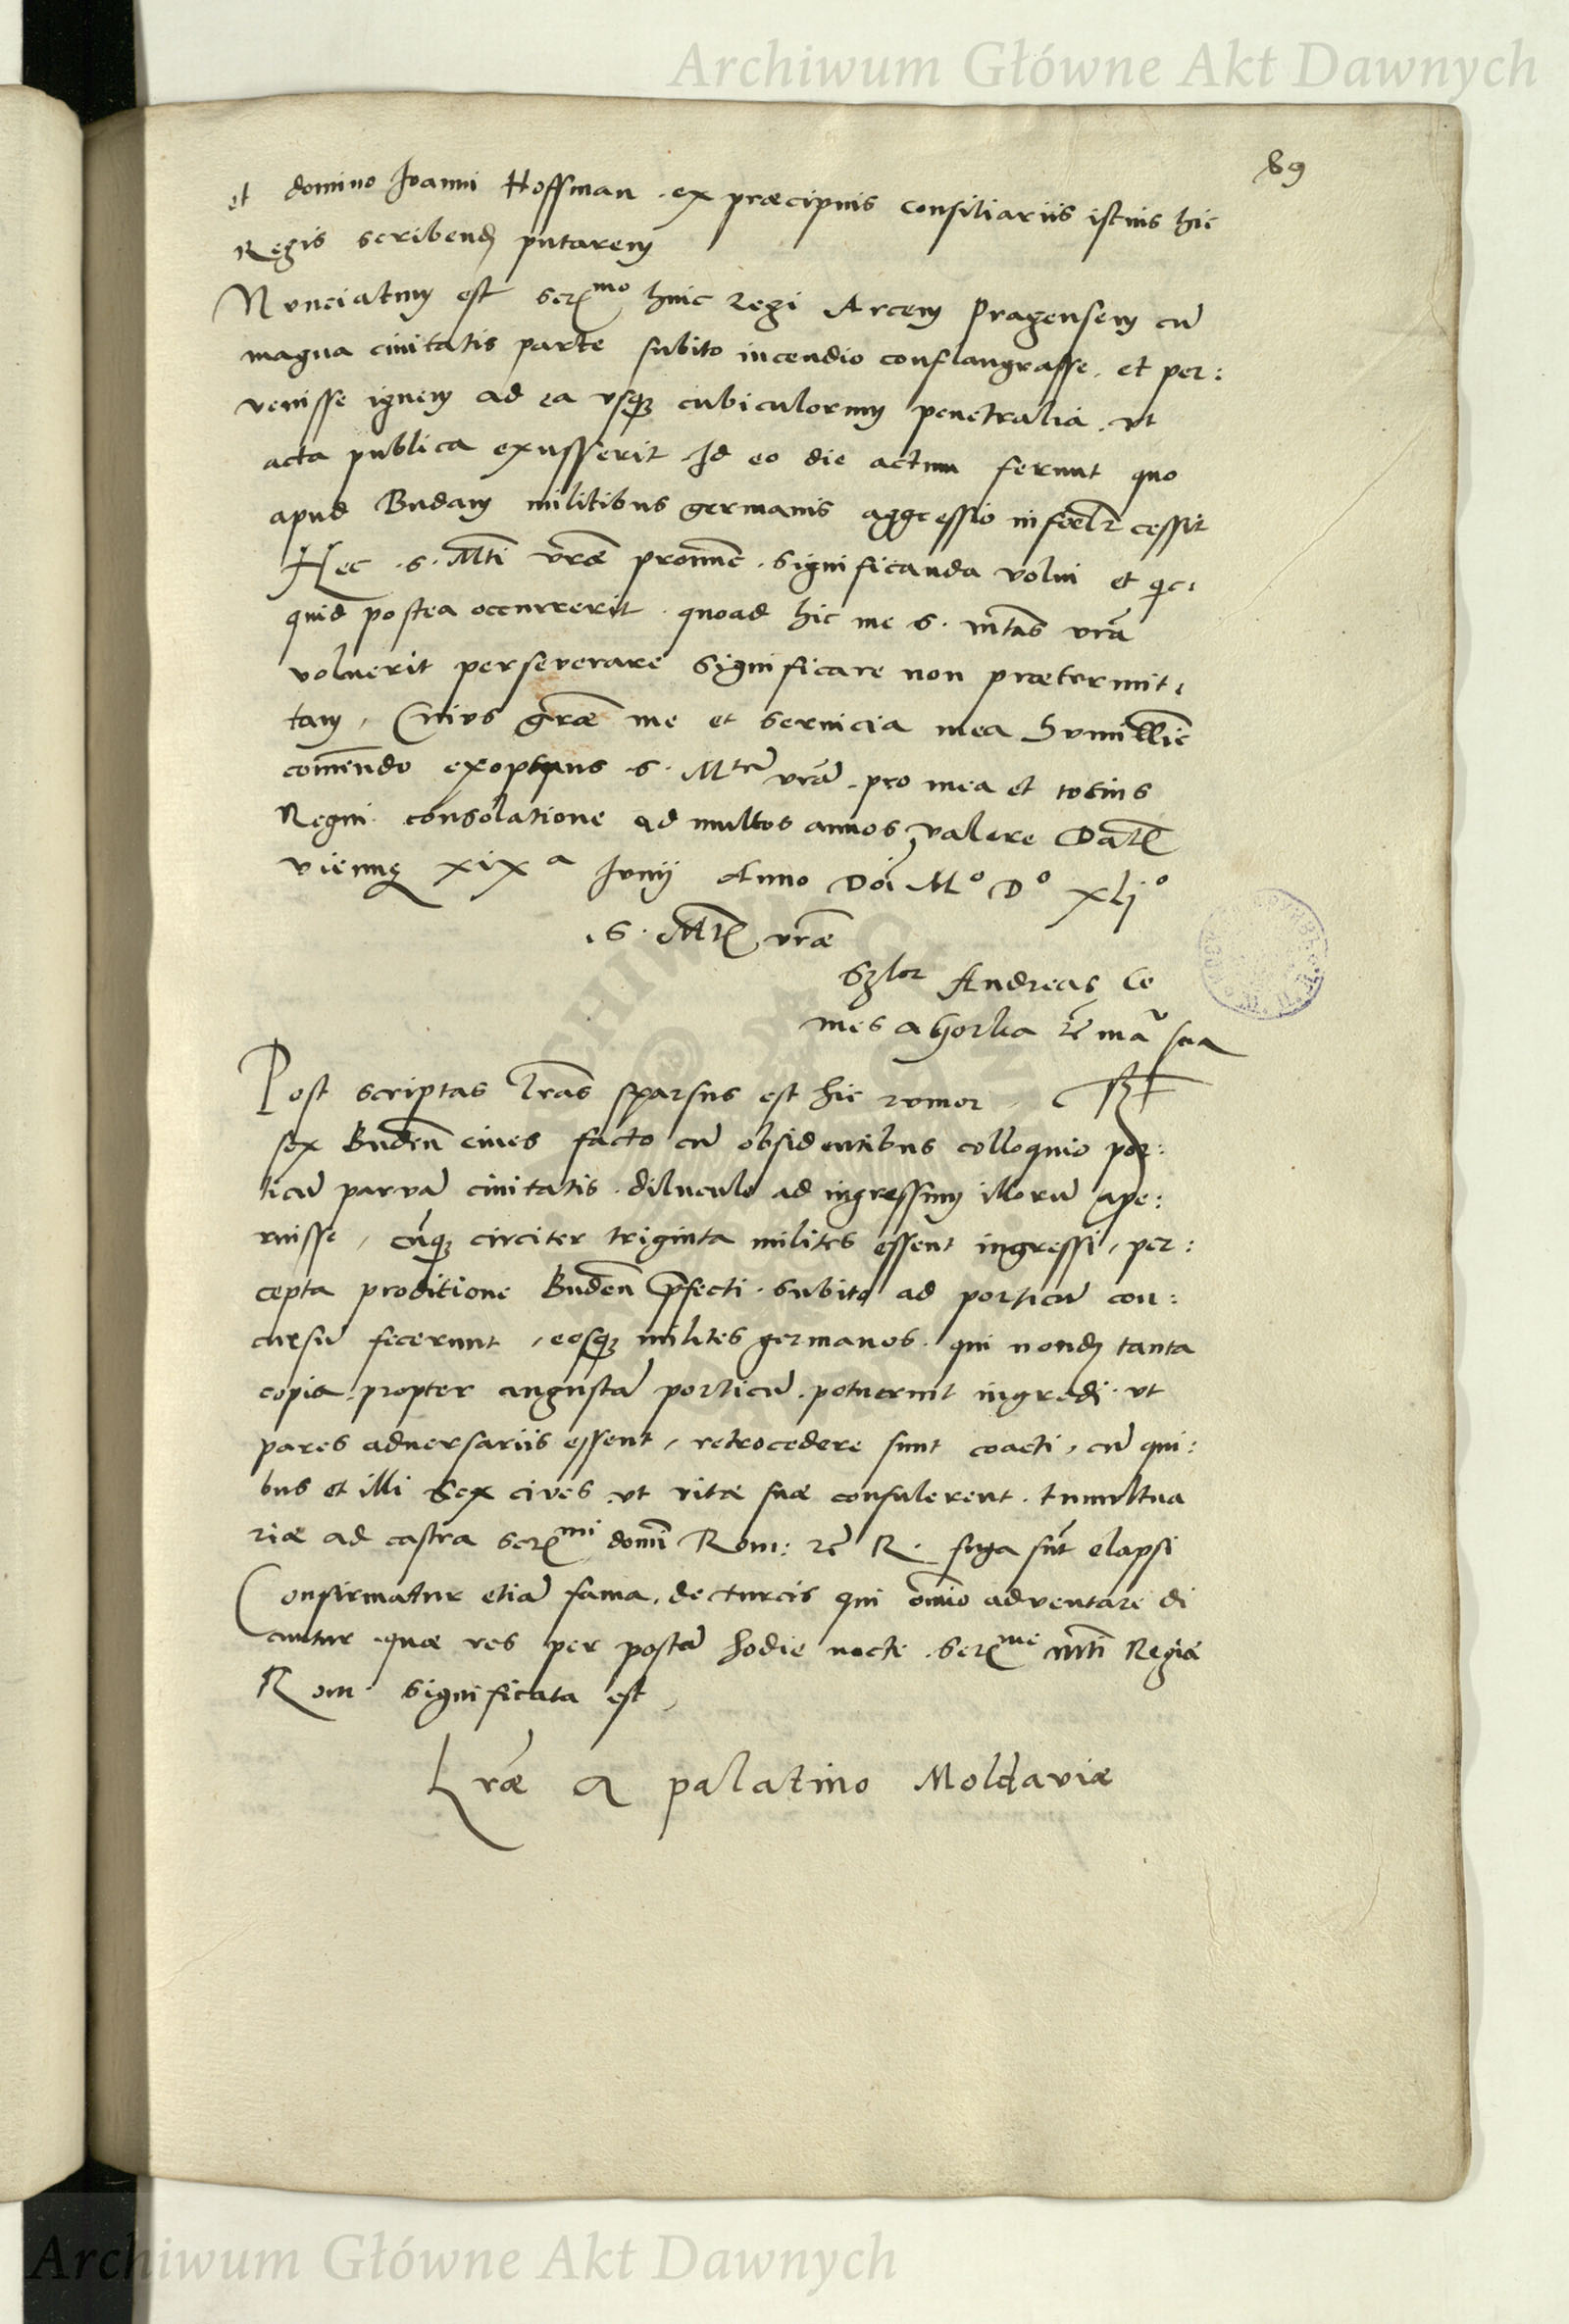 Archiwum Główne Akt Dawnych
89
et domino Ioanni Hoffman . ex præcipuis consiliariis istius hic
Regis scribend putarem
Nunciatum est serᵐᵒ huic regi Arcem Pragensem cū
magna civitatis parte subito incendio conflangrasse . et per:
venisse ignem ad ea usq cubiculorum penetralia . ut
acta publica exusserit Id eo die actum ferunt quo
apud Budam militibus germanis aggressio infœlr cessit
Hec . S . Mti vræ pronunc . significanda volui et qic:
quid postea occurrerit . quoad hic me S . mtas vrā
voluerit perseverare significare non prætermit:
tam , Cuius græ me et servicia mea humillīe
comēndo exoptans S . Mtē vrā . pro mea et tocius
Regni consolatione ad multos annos valere Dat
viennę xixᵃ Iunij Anno Doī Mº Dº xljº
. S . Mt vræ
Andreas Co
mes a Gorka mā sua
Post scriptas lrās sparsus est hic rumor
sex Budeñ cives facto cū obsidentibus colloquio por:
ticū parvā civitatis . diluculo ad ingressum illorū ape:
ruisse , cūq circiter triginta milites essent ingressi , per:
cepta proditione Budeñ pfecti . subito ad porticū con:
cursū fecerunt , eosq milites germanos . qui nond tanta
copia . propter angustā porticū . potuerunt ingredi . ut
pares adversariis essent , retrocedere sunt coacti , cū qui:
bus et illi sex cives . ut vitæ suæ consulerent . tumultua
riæ ad castra serᵐⁱ domī Rom: R . fuga sūt elapsi
Confirmatur etiā fama . de turcis qui oīno adventare di
cuntur . quæ res per postā hodie nocte . serᵐᵉ mti Regiæ
Rom . significata est ,
Lræ a palatino Moldaviæ
Archiwum Główne Akt Dawnych